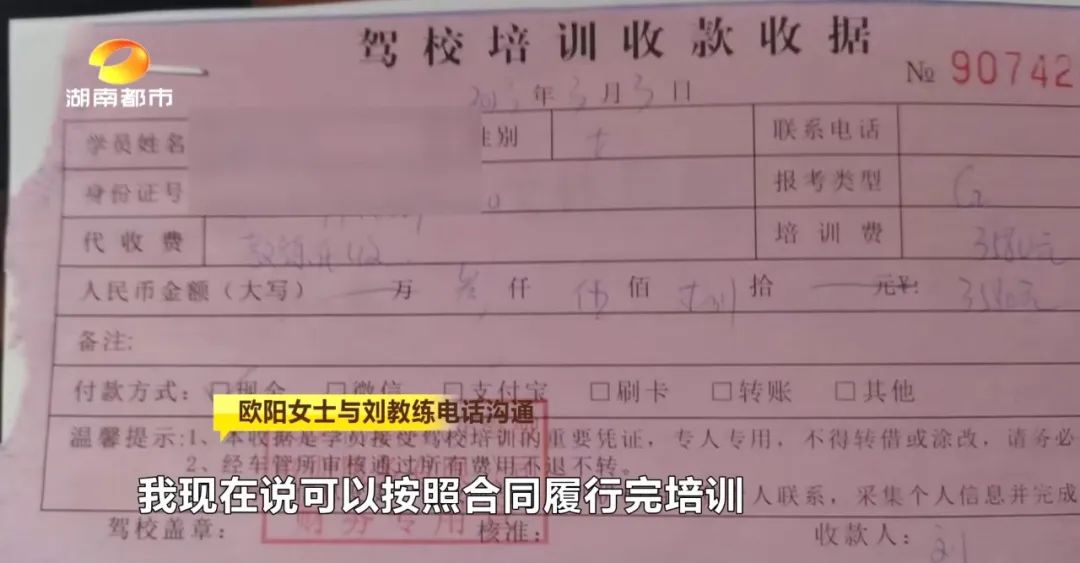 驾校培训收款收据
湖南都市
№ 90742
年3月3日
学员姓名 性别 女 联系电话
身份证号 报考类型 C2
代收费 培训费 3580元
人民币金额(大写) 万 叁仟 伍佰 捌拾 元¥: 3580元
备注:
付款方式: □现金 □微信 □支付宝 □刷卡 □转账 □其他
欧阳女士与刘教练电话沟通
温馨提示:1、本收据是学员接受驾校培训的重要凭证,专人专用,不得转借或涂改,请务必
2、经车管所审核通过所有费用不退不转。
人联系,采集个人信息并完成
我现在说可以按照合同履行完培训
驾校盖章: 财务专用 核准: 收款人: 刘